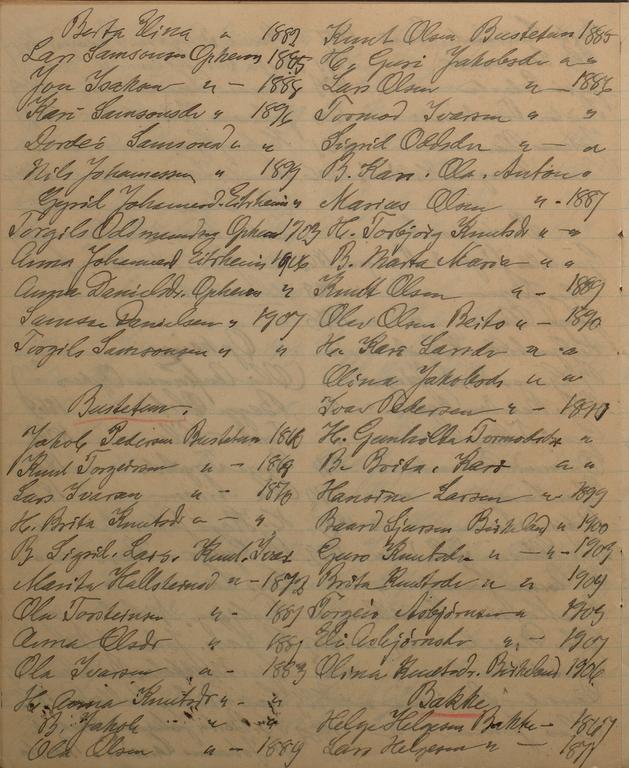 Berta Elina " 1882
Lars Samsonsen Opheim 1885
Jon Isakson " - 1886
Kari Samsonsdr " 1896
Dordei Samsond " "
Nils Johannessen " 1899
Gyrid Johannesd. Eitrheim "
Torgils Oddmundsen Opheim 1903
Anna Johannesd Eitrheim 1906
Anna Danielsdr. Opheim "
Samson Danielsen " 1907
Torgils Samsonsen " "
Bustetun.
Jakob Pedersen Bustetun 1868
Knud Torgeirsen " - 1869
Lars Ivarsen " - 1870
H. Brita Knutsdr " - "
B. Sigrid. Lars. Knut. Ivar
Marita Hallsteinsd " - 1872
Ola Torsteinsen " - 1881
Anna Olsdr " 1881
Ola Ivarsen " - 1883
H. Anna Knutsdr " - "
B. Jakob " - "
Ola Olsen " - 1889
Knut Olsen Bustetun 1885
H. Guri Jakobsdr " "
Lars Olsen " - 1886
Tormod Ivarsen " "
Sigrid Oddsdr " - "
B. Kari. Ola. Anton "
Marius Olsen " - 1887
H. Torbjørg Knutsdr " - "
B. Marta Maria " "
Knut Olsen " - 1889
Olav Olsen Beito " - 1890
H. Kari Larsdr " - "
Olina Jakobsdr " "
Ivar Pedersen " - 1890
H. Gunhilta Tormodsdr "
B. Brita. Kari " "
Hansine Larsen " - 1899
Baard Sjursen Birkeland " 1900
Guro Knutsdr " - " - 1903
Brita Knutsdr " " 1904
Torgeir Asbjørnsen " 1905
Eli Asbjørnsdr " - 1907
Olina Knutsdr. Birkeland 1906
Bakke
Helge Helgesen Bakke - 1867
Lars Helgesen " - 187